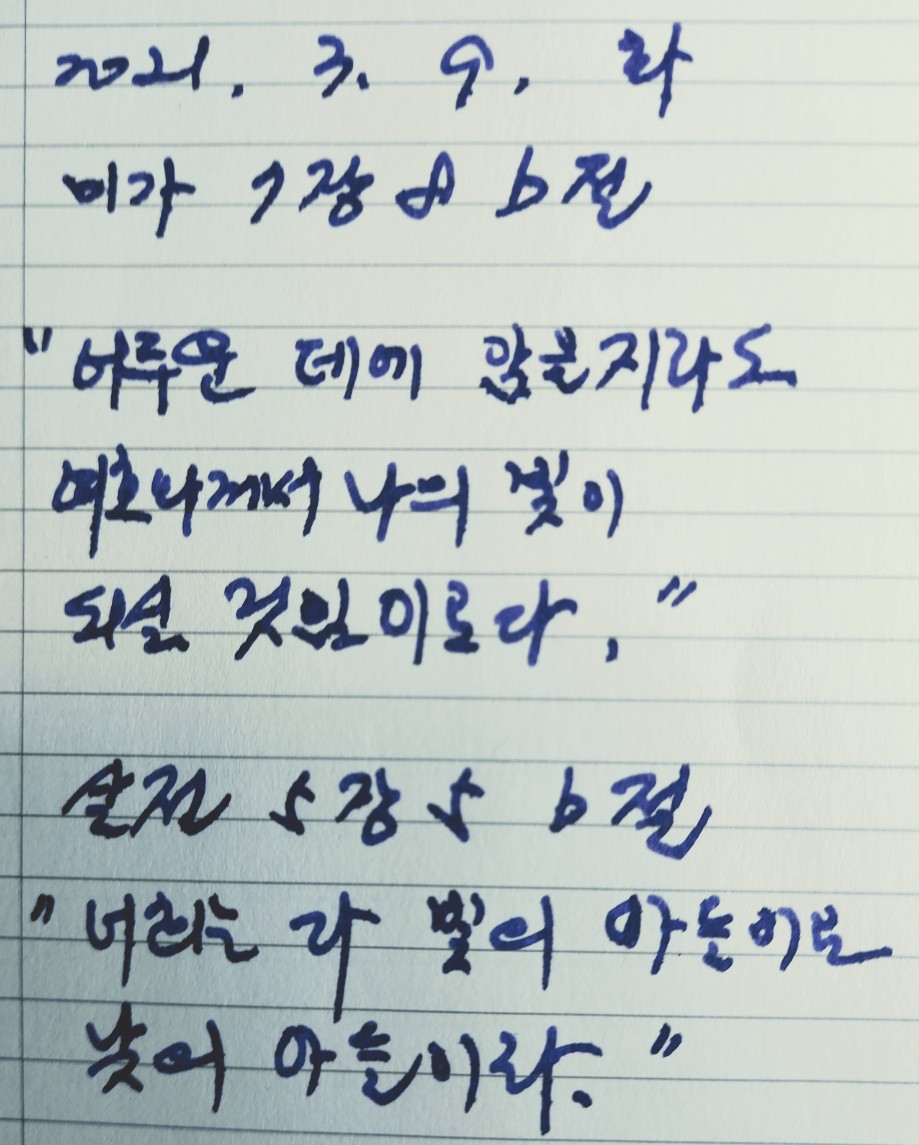 2021. 3. 9. 화
미가 7장 8 b절
"어두운 데에 앉을지라도
여호와께서 나의 빛이
되실 것임이로다."
살전 5장 5 b절
"너희는 다 빛의 아들이요
낮의 아들이라."